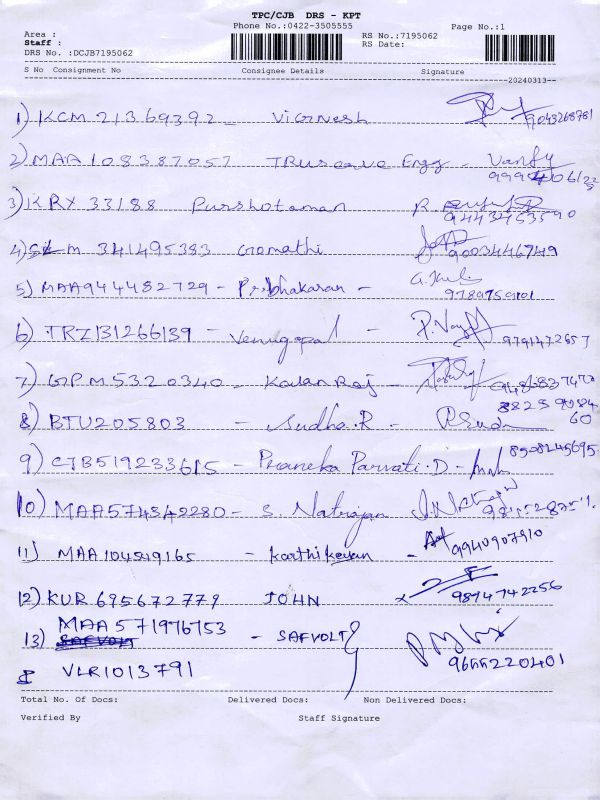 TPC/CJB DRS - KPT
Phone No.:0422-3505555
Page No.:1
Area :
Staff :
RS No.:7195062
RS Date:
DRS No. :DCJB7195062
S No Consignment No Consignee Details Signature
20240313
1) KCM 21369392 - Vignesh 9043268781
2) MAA 108387057 Truseave Engg -
3) KRX 33188 Purshotaman R. 9443453590
4) M 341495383 Gomathi 9003446749
5) MAA944482729 - Prabhakaran - 9789759101
6) TRZ131266139 - Venugopal - 9791472657
7) GPM5320340 - Kalan Raj -
8) BTU205803 - Sudha.R -
9) CJB519233615 - Praneka Parvati.D - 8508245695
10) MAA574342280 - S. Natrajan
11) MAA104549165 - Karthikeyan - 9940907910
12) KUR 695672779 JOHN 9874742256
13) MAA571976753 - SAFVOLT
& VLR1013791 9655220401
Total No. Of Docs: Delivered Docs: Non Delivered Docs:
Verified By Staff Signature